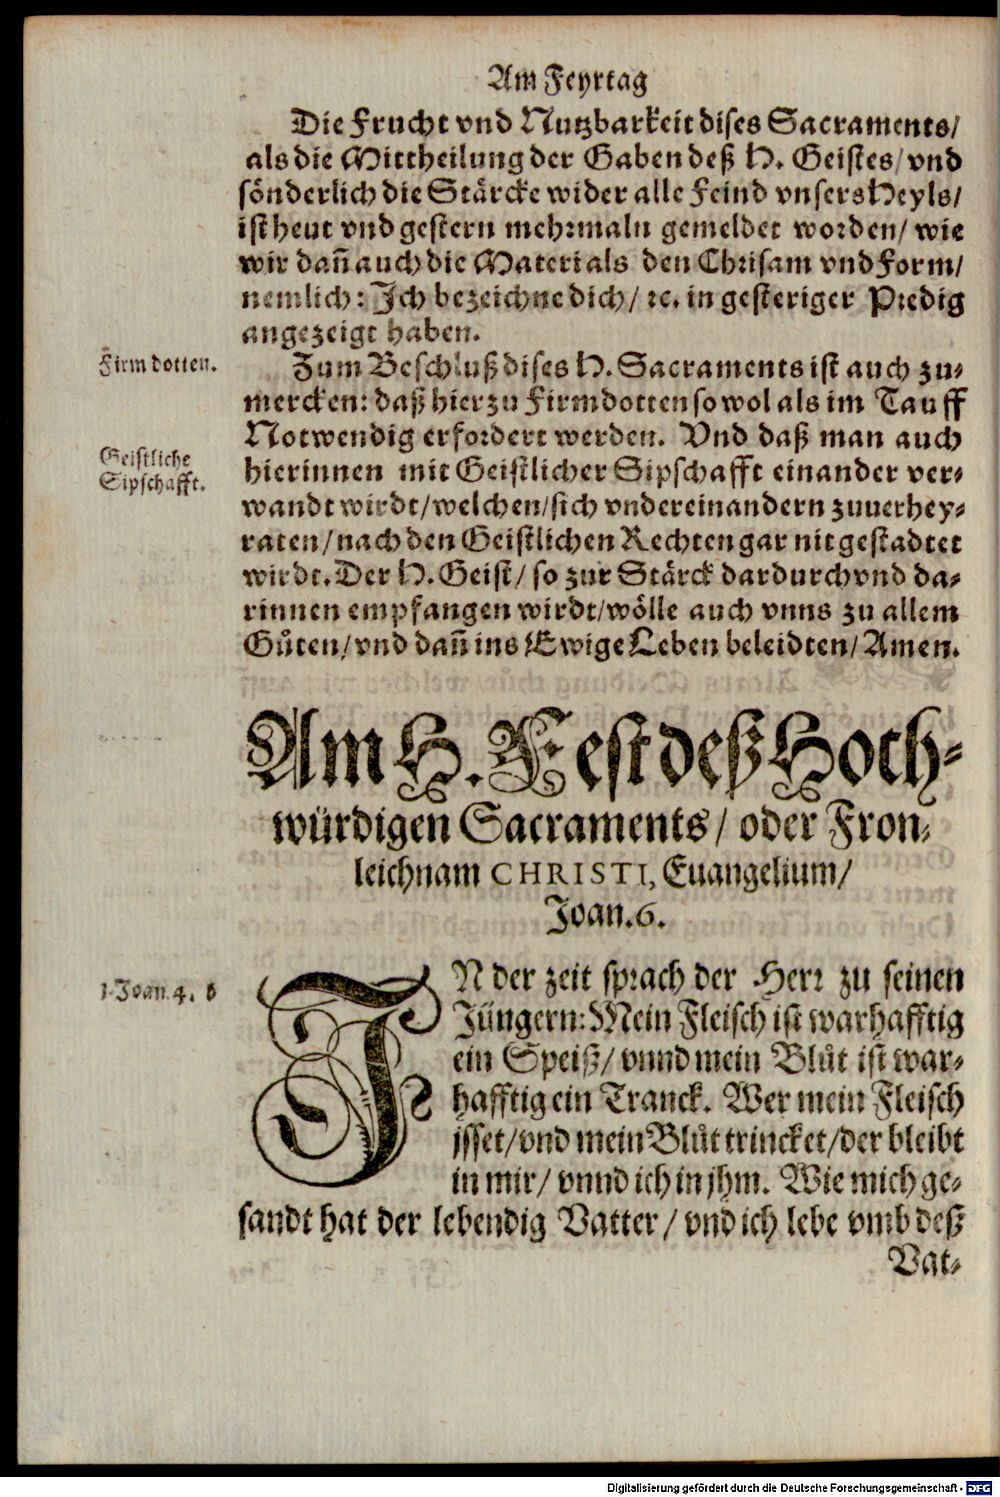 Am Feyrtag
Die Frucht vnd Nutzbarkeit dises Sacraments/
als die Mittheilung der Gaben deß H. Geistes/ vnd
sönderlich die Stärcke wider alle Feind vnsers Heyls/
ist heut vnd gestern mehrmaln gemeldet worden/ wie
wir dañ auch die Materi als den Chrisam vnd Form/
nemlich: Ich bezeichne dich/ ꝛc. in gesteriger Predig
angezeigt haben.
Firmdotten.
Zum Beschluß dises H. Sacraments ist auch zu-
mercken: daß hierzu Firmdotten so wol als im Tauff
Notwendig erfordert werden. Vnd daß man auch
Geistliche
Sipschafft.
hierinnen mit Geistlicher Sipschafft einander ver-
wandt wirdt/ welchen/ sich vndereinandern zuuerhey-
raten/ nach den Geistlichen Rechten gar nit gestadtet
wirdt. Der H. Geist/ so zur Stärck dardurch vnd da-
rinnen empfangen wirdt/ wölle auch vnns zu allem
Gůten/ vnd dañ ins Ewige Leben beleidten/ Amen.
Am H. Fest deß Hoch-
würdigen Sacraments/ oder Fron-
leichnam CHRISTI, Euangelium/
Joan. 6.
1. Joan. 4. b
IN der zeit sprach der Herr zu seinen
Jüngern: Mein Fleisch ist warhafftig
ein Speiß/ vnnd mein Blůt ist war-
hafftig ein Tranck. Wer mein Fleisch
jsset/ vnd mein Blůt trincket/ der bleibt
in mir/ vnnd ich in jhm. Wie mich ge-
sandt hat der lebendig Vatter/ vnd ich lebe vmb deß
Vat-
Digitalisierung gefördert durch die Deutsche Forschungsgemeinschaft - DFG